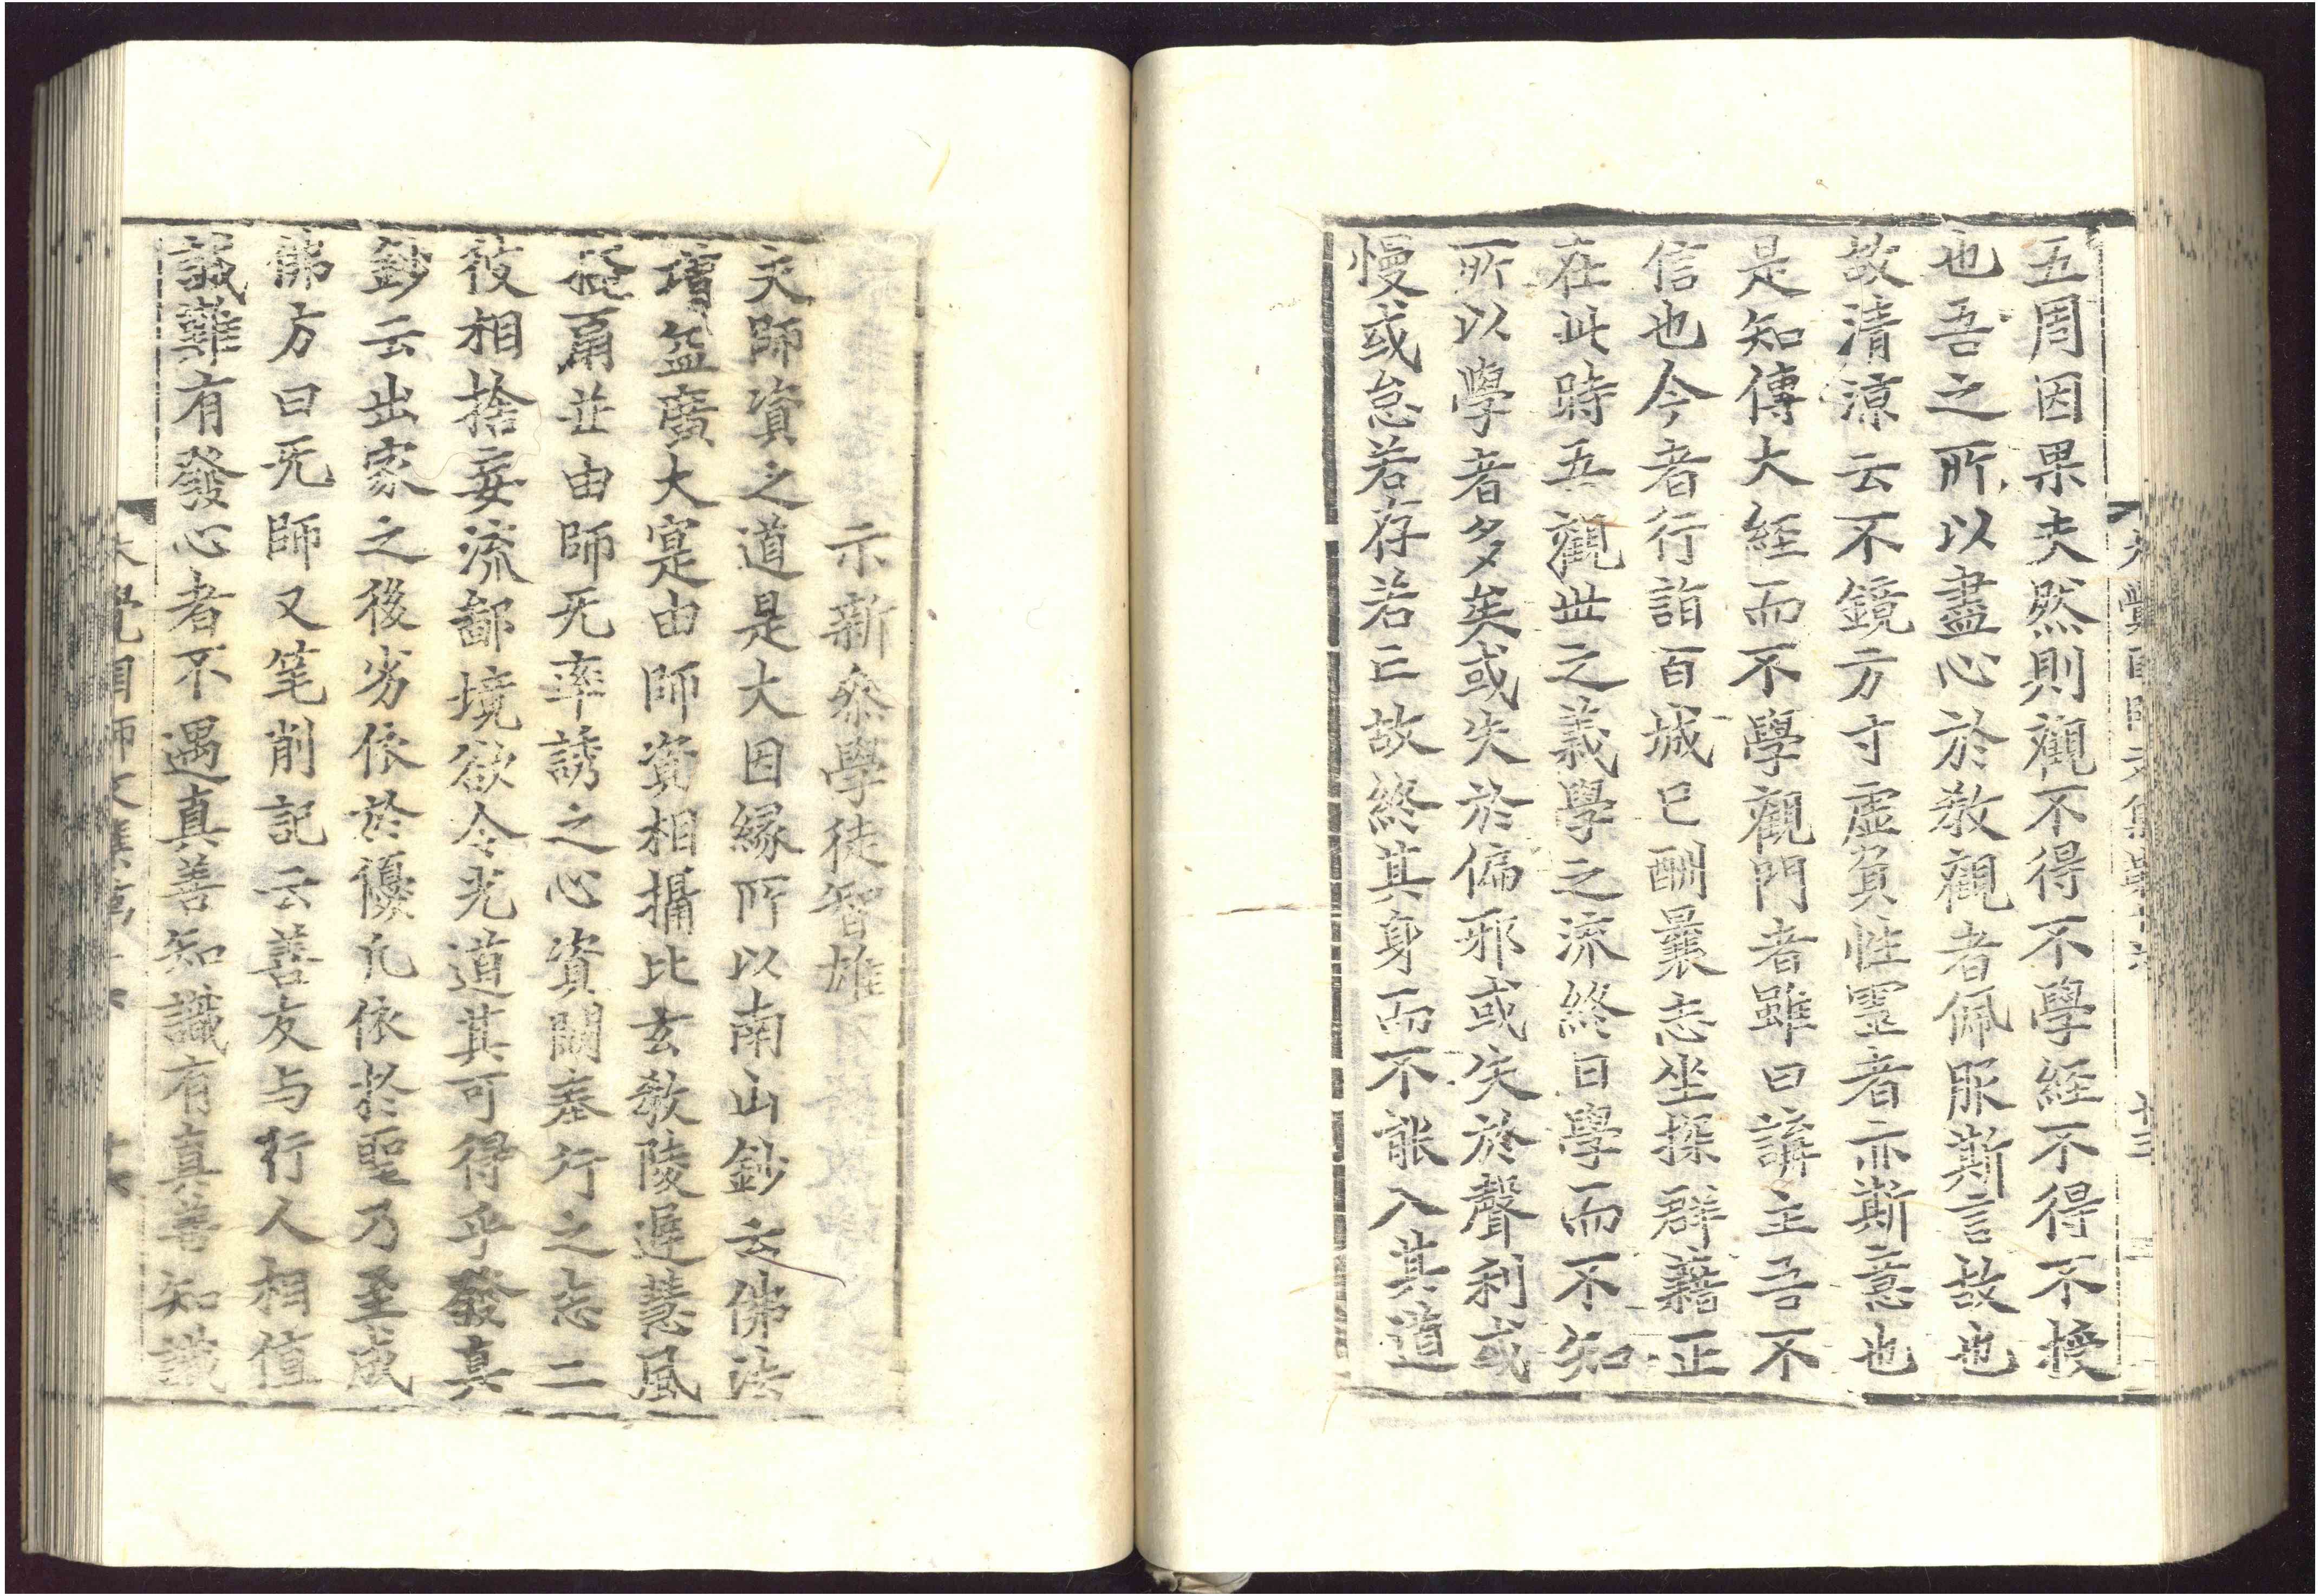 五周因果夫然則觀不得不學経不得不授
也吾之所以盡心於敎觀者佩服斯言故也
故清涼云不鏡方寸虛負性靈者亦斯意也
是知傳大経而不學觀門者雖曰講主吾不
信也今者行詣百城已酬曩志坐探群藉正
在此時五觀世之義學之流終日學而不知
所以學者多矣或失於偏邪或失於聲利或
慢或怠若存若亡故終其身而不能入其道
示新叅學徒智雄
夫師資之道是大因縁所以南山鈔云佛法
增益廣大寔由師資相攝比玄敎陵遲慧風
掩扇並由師无率誘之心資闕奉行之志二
彼相捨妄流鄙境欲令光道其可得乎發真
鈔云出家之後劣依於優凡依於聖乃至成
佛方曰无師又笔削記云善友与行人相值
誠難有發心者不遇真善知識有真善知識
大覺國師文集第十六